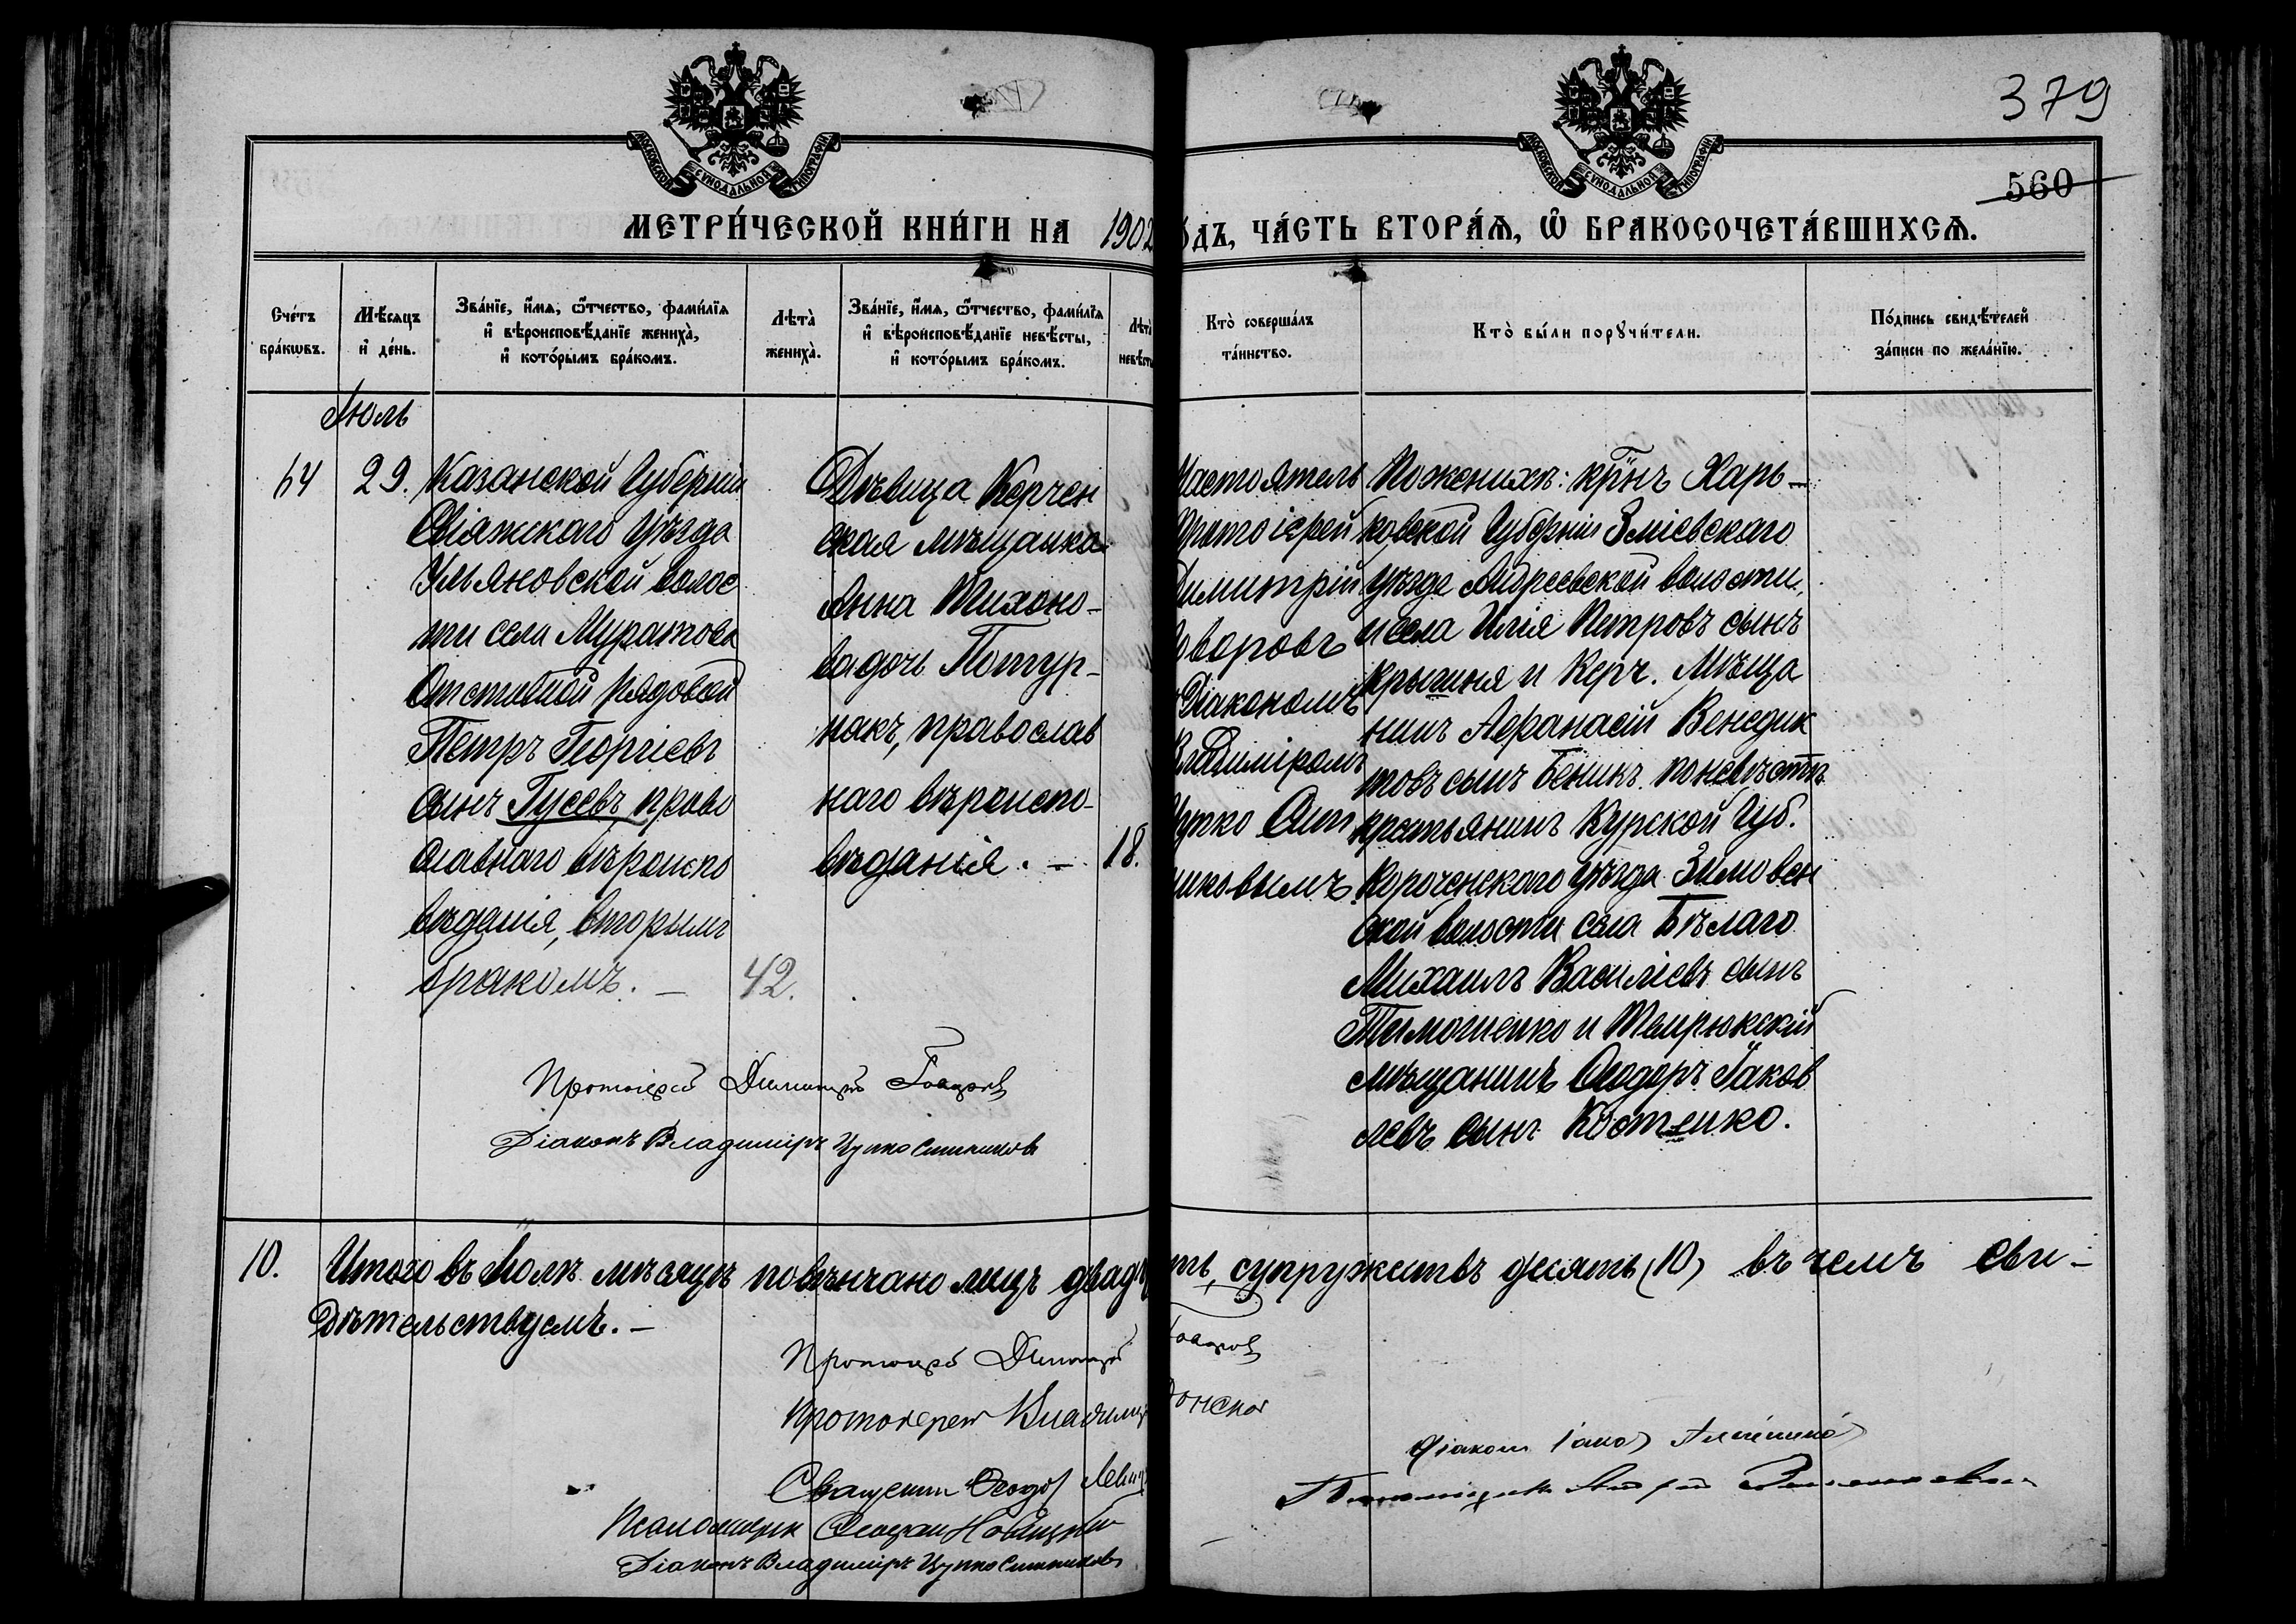 379
560
МОСКОВСКОЙ СУНОДАЛЬНОЙ ТИПОГРАФІИ
МОСКОВСКОЙ СУНОДАЛЬНОЙ ТИПОГРАФІИ
МЕТРИ́ЧЕСКОЙ КНИ́ГИ НА 1902
ѻдъ, ЧА́СТЬ ВТОРА́Ѧ, Ѡ҆ БРАКОСОЧЕТА́ВШИХСѦ.
Сче́тъ
бра́кѡвъ.
Мѣ́сѧцъ
и҆ де́нь.
Зва́нїе, и҆́мѧ, ѻ҆́тчество, фами́лїѧ
и҆ вѣроисповѣ́данїе жениха̀,
и҆ кото́рымъ бра́комъ.
Лѣта̀
жениха̀.
Зва́нїе, и҆́мѧ, ѻ҆́тчество, фами́лїѧ
и҆ вѣроисповѣ́данїе невѣ́сты,
и҆ кото́рымъ бра́комъ.
Лѣта̀
невѣ́ст
Кто̀ соверша́лъ
та́инство.
Кто̀ бы́ли порꙋчи́тели.
По́дпись свидѣ́телей
за́писи по жела́нїю.
Іюль
64
29.
Казанской Губерніи
Свіяжскаго уѣзда
Ульяновской волос
ти села Муратова
Отставной рядовой
Петръ Георгіевъ
сынъ Гусевъ, право
славнаго вѣроиспо
вѣданія, вторымъ
бракомъ. –
42.
Дѣвица Керчен
ская мѣщанка
Анна Тихоно-
ва дочь Потур-
накъ, православ
наго вѣроиспо-
вѣданія. –
18.
Настоятель
Протоіерей
Димитрій
оваровъ
Діакономъ
Владиміромъ
Цупко Сит
никовымъ.
По женихѣ: кр̃нъ Харь-
ковской Губерніи Зміевскаго
уѣзда Андреевской волости,
и села Илія Петровъ сынъ
Крысиня и Керч. Мѣща
нинъ Афанасій Венедик
товъ сынъ Беникъ. по невѣстѣ
крестьянинъ Курской Губ.
Короченскаго уѣзда Зимовен
ской волости села Бѣлаго
Михаилъ Василіевъ сынъ
Тимошенко и Темрюкскій
мѣщанинъ Ѳеодоръ Іаков
левъ сынъ Костенко.
Протоіерей Димитрій Говоровъ
Діаконъ Владиміръ Цупко Ситниковъ
10.
Итого въ Іюлѣ мѣсяцѣ повѣнчано лицъ двадц
ть, супружествъ десять (10) въ чемъ сви-
дѣтельствуемъ. –
Протоіерей Димитрій
Говоровъ
Протоіерей Владимір
онской
Священникъ Ѳеодоръ Левиц
Псаломщикъ Новицкій
Діаконъ Владиміръ Цупко Ситниковъ
Діаконъ Іаковъ
Псаломщикъ Андрей